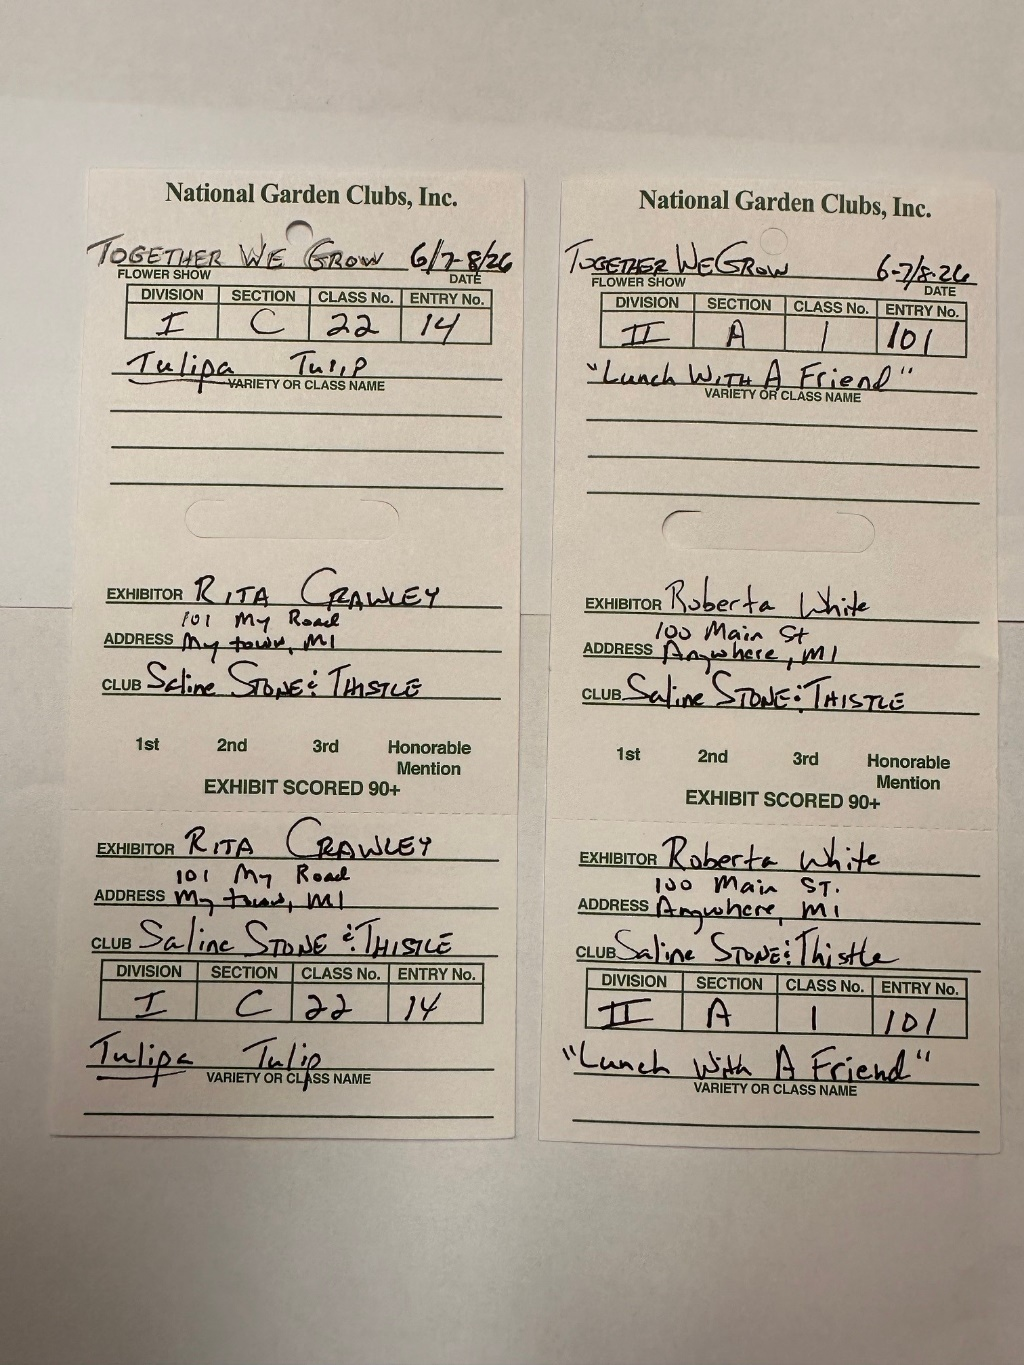 National Garden Clubs, Inc.
TOGETHER WE GROW 6/7-8/26
FLOWER SHOW DATE
DIVISION SECTION CLASS No. ENTRY No.
I C 22 14
Tulipa Tulip
VARIETY OR CLASS NAME
EXHIBITOR RITA CRAWLEY
101 My Road
ADDRESS My town, MI
CLUB Saline STONE & THISTLE
1st 2nd 3rd Honorable
Mention
EXHIBIT SCORED 90+
EXHIBITOR RITA CRAWLEY
101 My Road
ADDRESS My town, MI
CLUB Saline STONE & THISTLE
DIVISION SECTION CLASS No. ENTRY No.
I C 22 14
Tulipa Tulip
VARIETY OR CLASS NAME
National Garden Clubs, Inc.
TOGETHER WE GROW 6-7/8-26
FLOWER SHOW DATE
DIVISION SECTION CLASS No. ENTRY No.
II A 1 101
"Lunch WITH A Friend"
VARIETY OR CLASS NAME
EXHIBITOR Roberta White
100 Main St
ADDRESS Anywhere, MI
CLUB Saline STONE & THISTLE
1st 2nd 3rd Honorable
Mention
EXHIBIT SCORED 90+
EXHIBITOR Roberta White
100 Main ST.
ADDRESS Anywhere, MI
CLUB Saline STONE & Thistle
DIVISION SECTION CLASS No. ENTRY No.
II A 1 101
"Lunch With A Friend"
VARIETY OR CLASS NAME